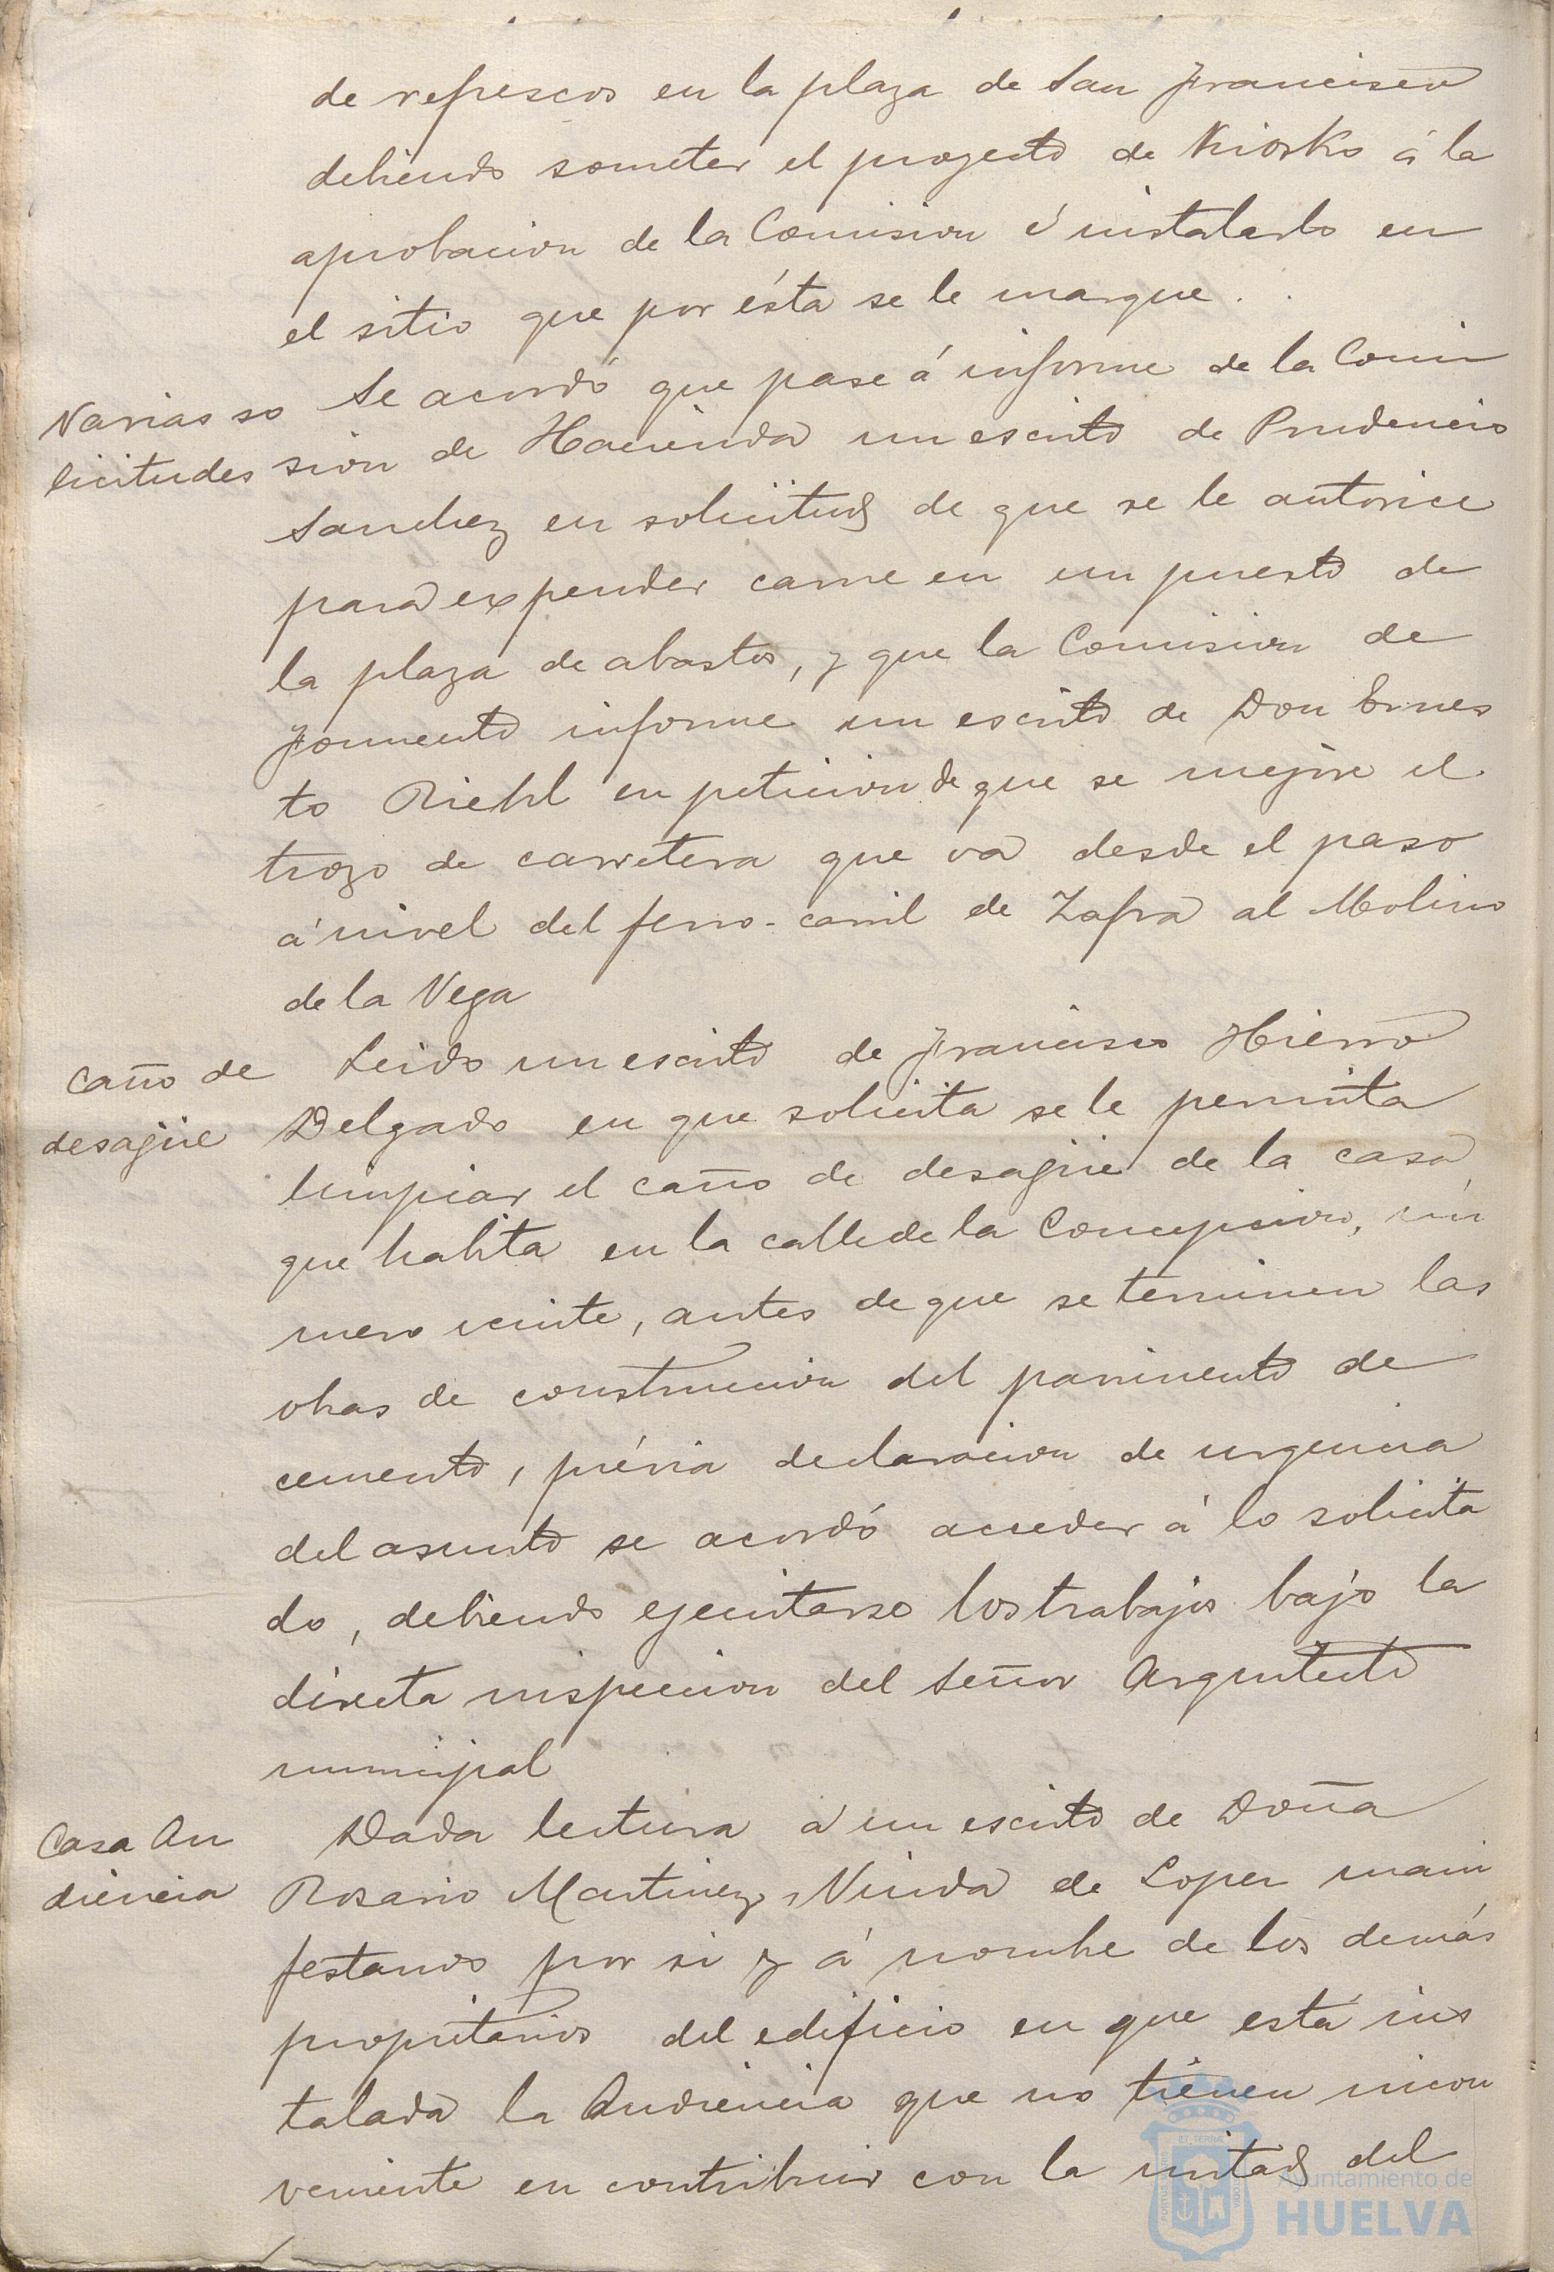 de refrescos en la plaza de San Francisco
debiendo someter el proyecto de Kiosko á la
aprobacion de la Comision é instalarlo en
el sitio que por ésta se le marque.
Varias so
licitudes
Se acordó que pase á informe de la Comi
sion de Hacienda un escrito de Prudencio
Sanchez en solicitud de que se le autorice
para expender carne en un puesto de
la plaza de abastos, y que la Comision de
Fomento informe un escrito de Don Ernes
to Riehl en peticion de que se mejore el
trozo de carretera que va desde el paso
á nivel del ferro-carril de Zafra al Molino
de la Vega
Caño de
desagüe
Leido un escrito de Francisco Hierro
Delgado en que solicita se le permita
limpiar el caño de desagüe de la casa
que habita en la calle de la Concepcion, nú
mero veinte, antes de que se terminen las
obras de construccion del pavimento de
cemento, prévia declaracion de urgencia
del asunto se acordó acceder á lo solicita
do, debiendo ejecutarse los trabajos bajo la
directa inspeccion del Señor Arquitecto
municipal
Casa Au
diencia
Dada lectura á un escrito de Doña
Rosario Martinez, Viuda de Lopez mani
festando por si y á nombre de los demás
propietarios del edificio en que está ins
talada la Audiencia que no tienen incon
veniente en contribuir con la mitad del
Ayuntamiento de
HUELVA